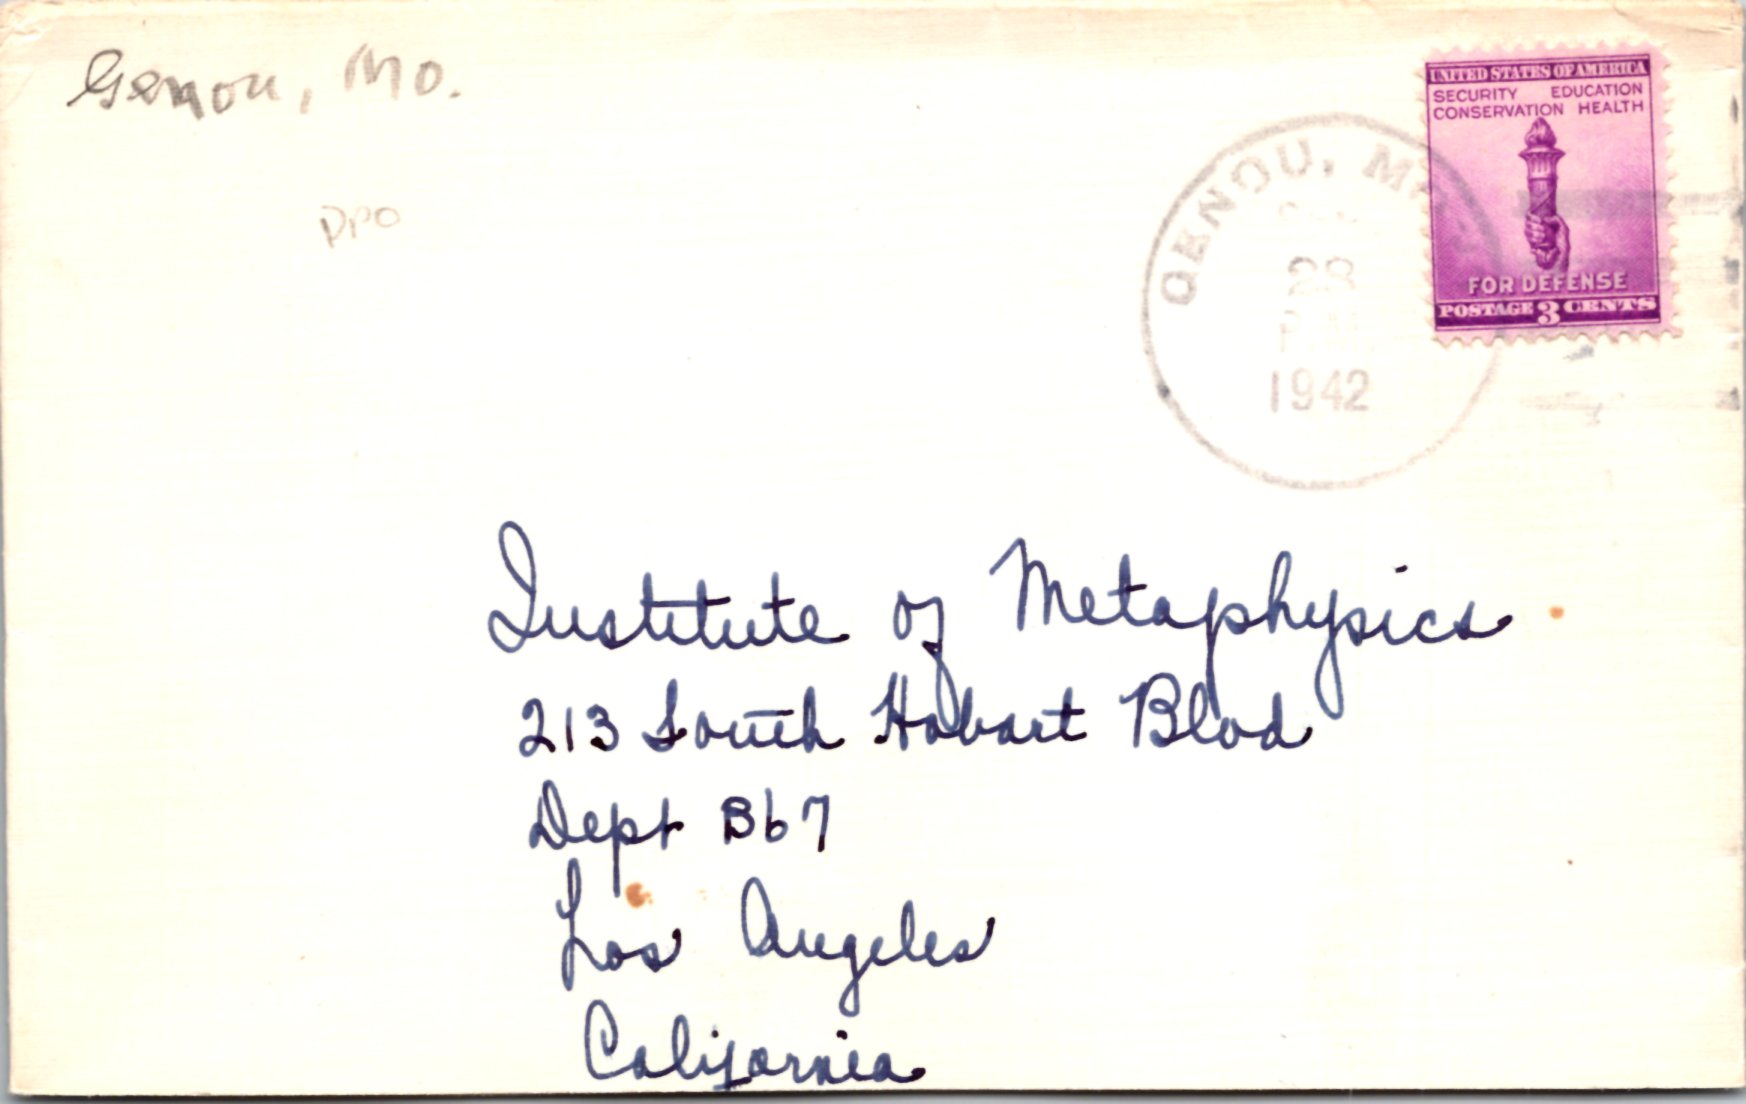 Genou, Mo.
DPO
UNITED STATES OF AMERICA
SECURITY EDUCATION
CONSERVATION HEALTH
FOR DEFENSE
POSTAGE 3 CENTS
GENOU, MO
28
P.M.
1942
Institute of Metaphysics
213 South Hobart Blvd
Dept B67
Los Angeles
California